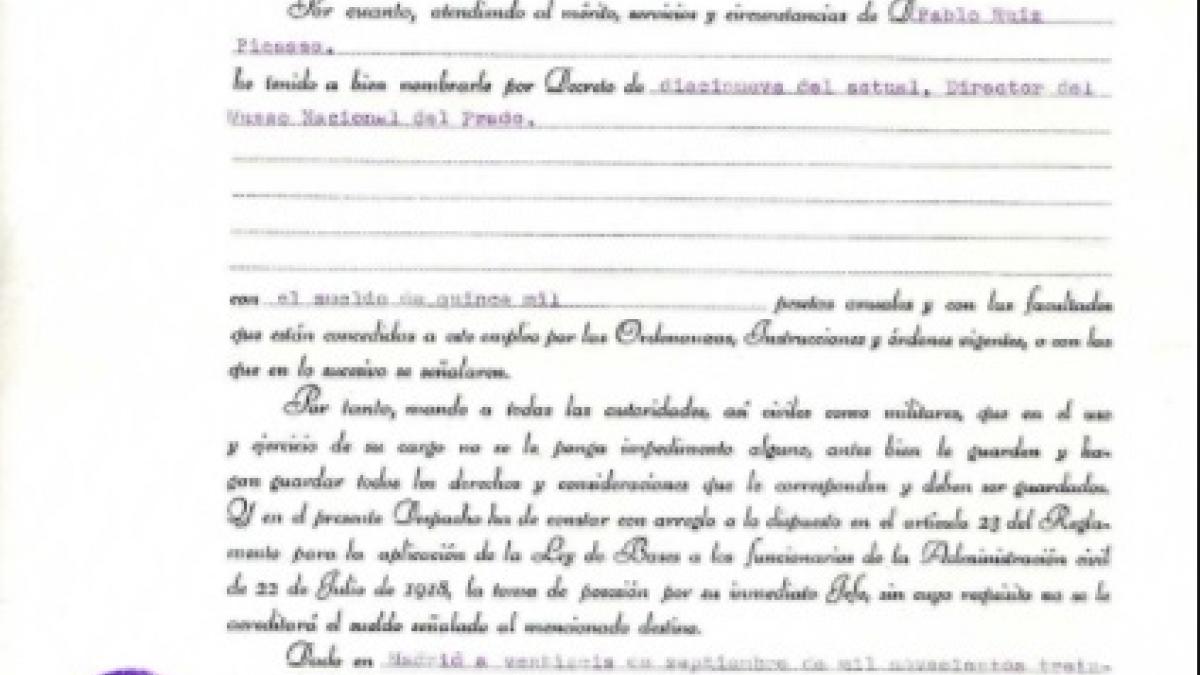 Por cuanto, atendiendo al mérito, servicios y circunstancias de D. Pablo Ruiz
Picasso,
he tenido a bien nombrarle por Decreto de diecinueve del actual, Director del
Museo Nacional del Prado,
con el sueldo de quince mil pesetas anuales y con las facultades
que están concedidas a este empleo por las Ordenanzas, Instrucciones y órdenes vigentes, o con las
que en lo sucesivo se señalaren.
Por tanto, mando a todas las autoridades, así civiles como militares, que en el uso
y ejercicio de su cargo no se le ponga impedimento alguno, antes bien le guarden y ha-
gan guardar todos los derechos y consideraciones que le corresponden y deben ser guardados.
Y en el presente Despacho ha de constar con arreglo a lo dispuesto en el artículo 23 del Regla-
mento para la aplicación de la Ley de Bases a los funcionarios de la Administración civil
de 22 de Julio de 1918, la toma de posesión por su inmediato Jefe, sin cuyo requisito no se le
acreditará el sueldo señalado al mencionado destino.
Dado en Madrid a ventiseis de septiembre de mil novecientos trein-